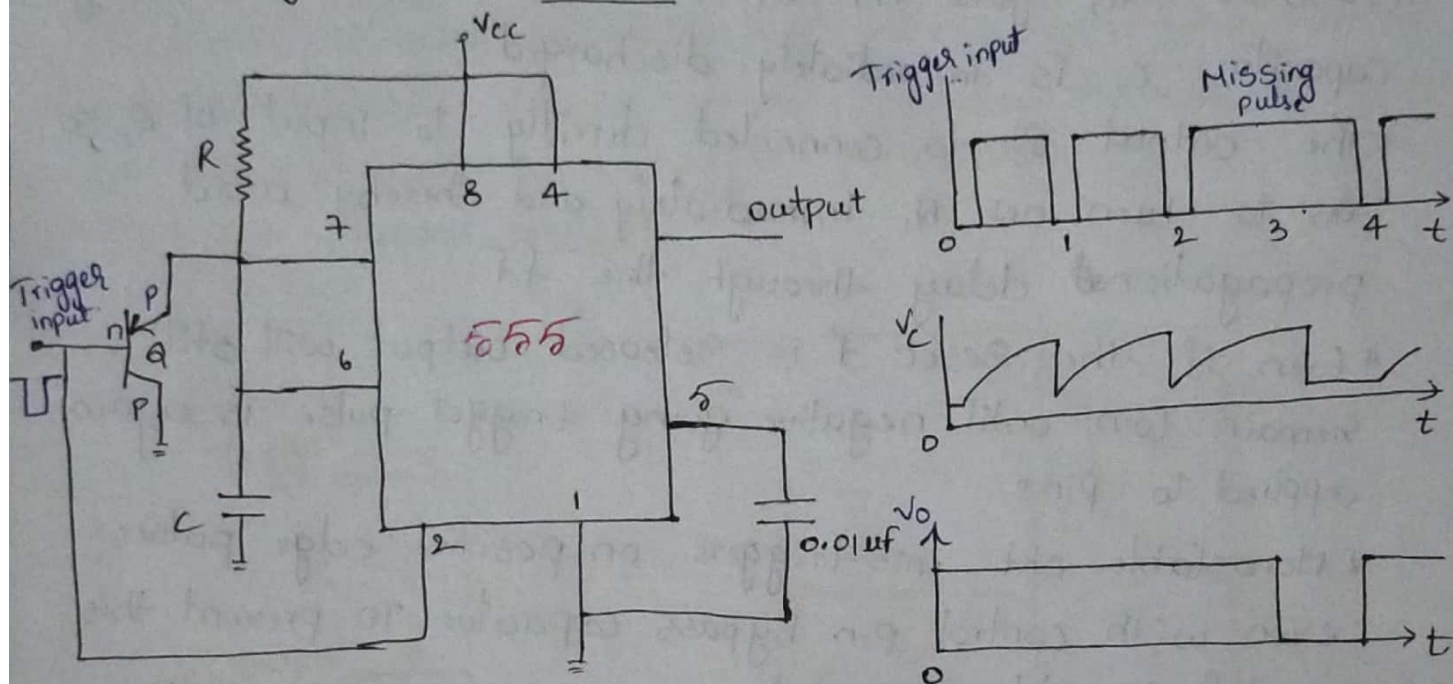 Vcc
R
8 4
7
output
Trigger
input
P
n
Q
P
555
6
5
C
2
1
0.01uf
Trigger input
Missing
pulse
0 1 2 3 4 t
Vc
0
t
Vo
0
t